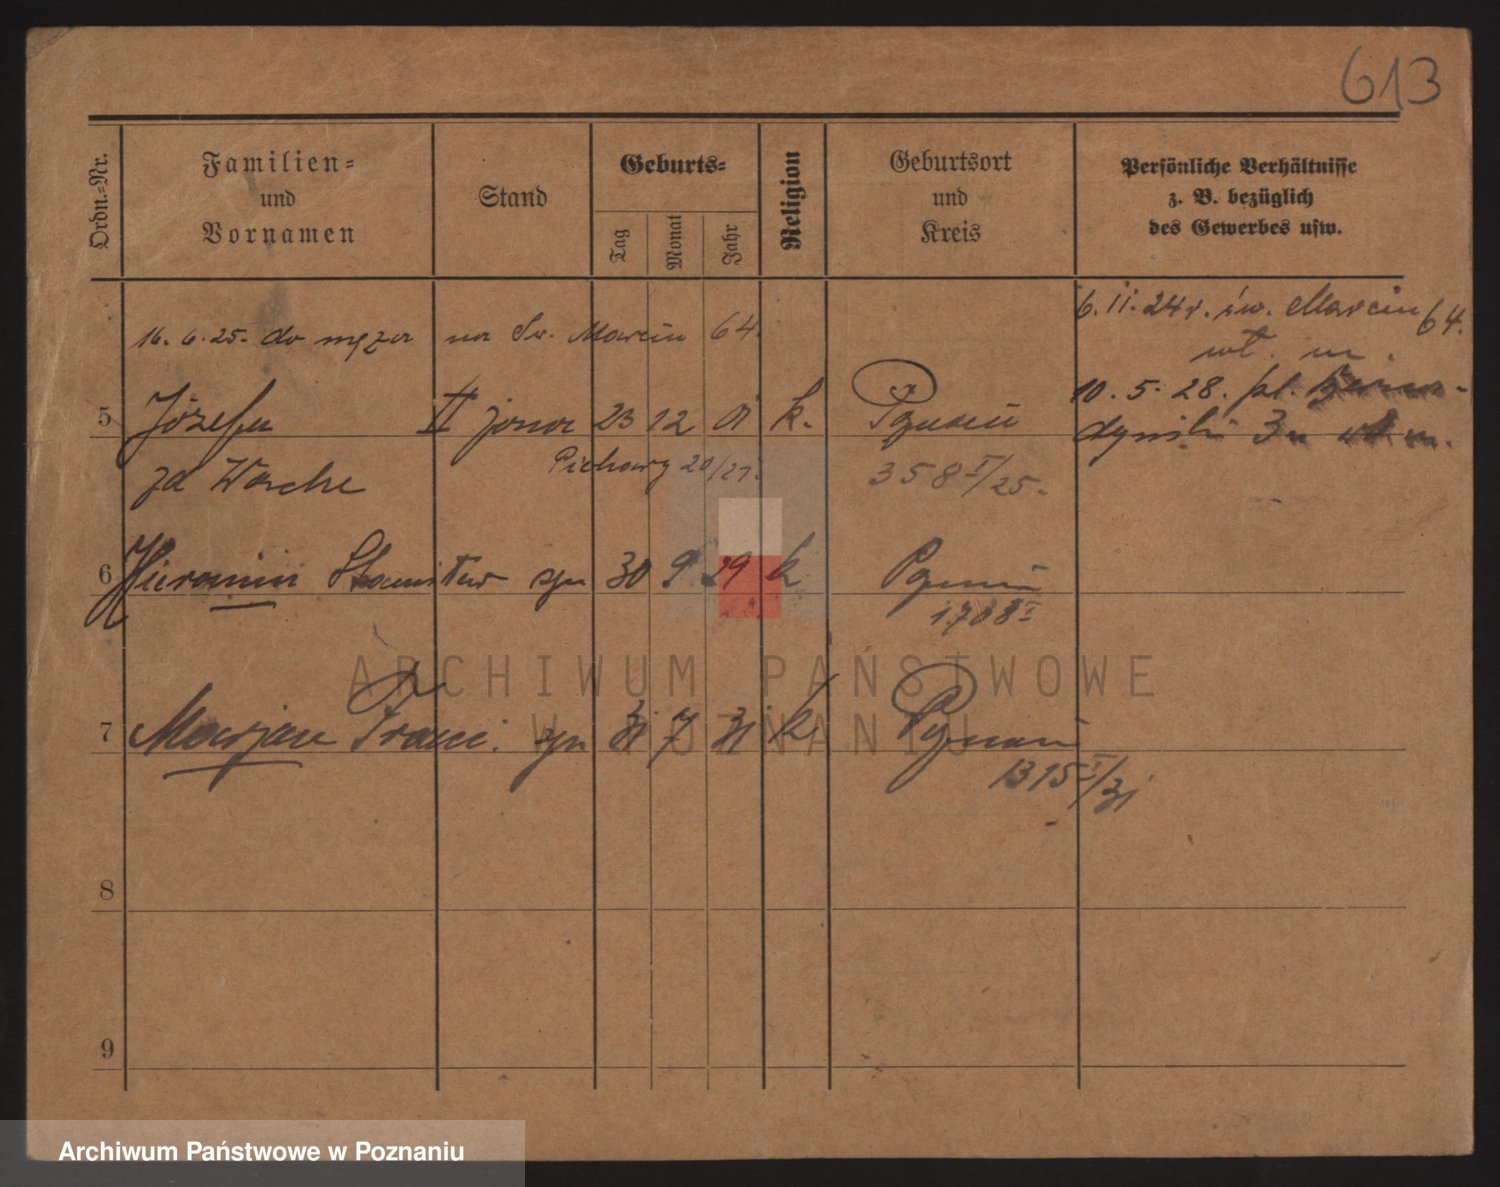 613
Ordn.=Nr.
Familien=
und
Vornamen
Stand
Geburts=
Tag
Monat
Jahr
Religion
Geburtsort
und
Kreis
Persönliche Verhältnisse
z. B. bezüglich
des Gewerbes usw.
6. 11. 24 r. św. Marcin 64.
wł. m.
16. 6. 25. do męża na Św. Marcin 64.
10. 5. 28. pl.
5 Józefa II żona 23 12 01 k. Poznań
3a wł. m.
za Wache
Piekary 20/21.
358 I/25.
6 Hieronim Stanisław syn 30 9 29 k Poznań
1708 I
ARCHIWUM PAŃSTWOWE
W POZNANIU
7 Marjan Franc. syn 31 7 31 k Poznań
1315 I/31
8
9
Archiwum Państwowe w Poznaniu